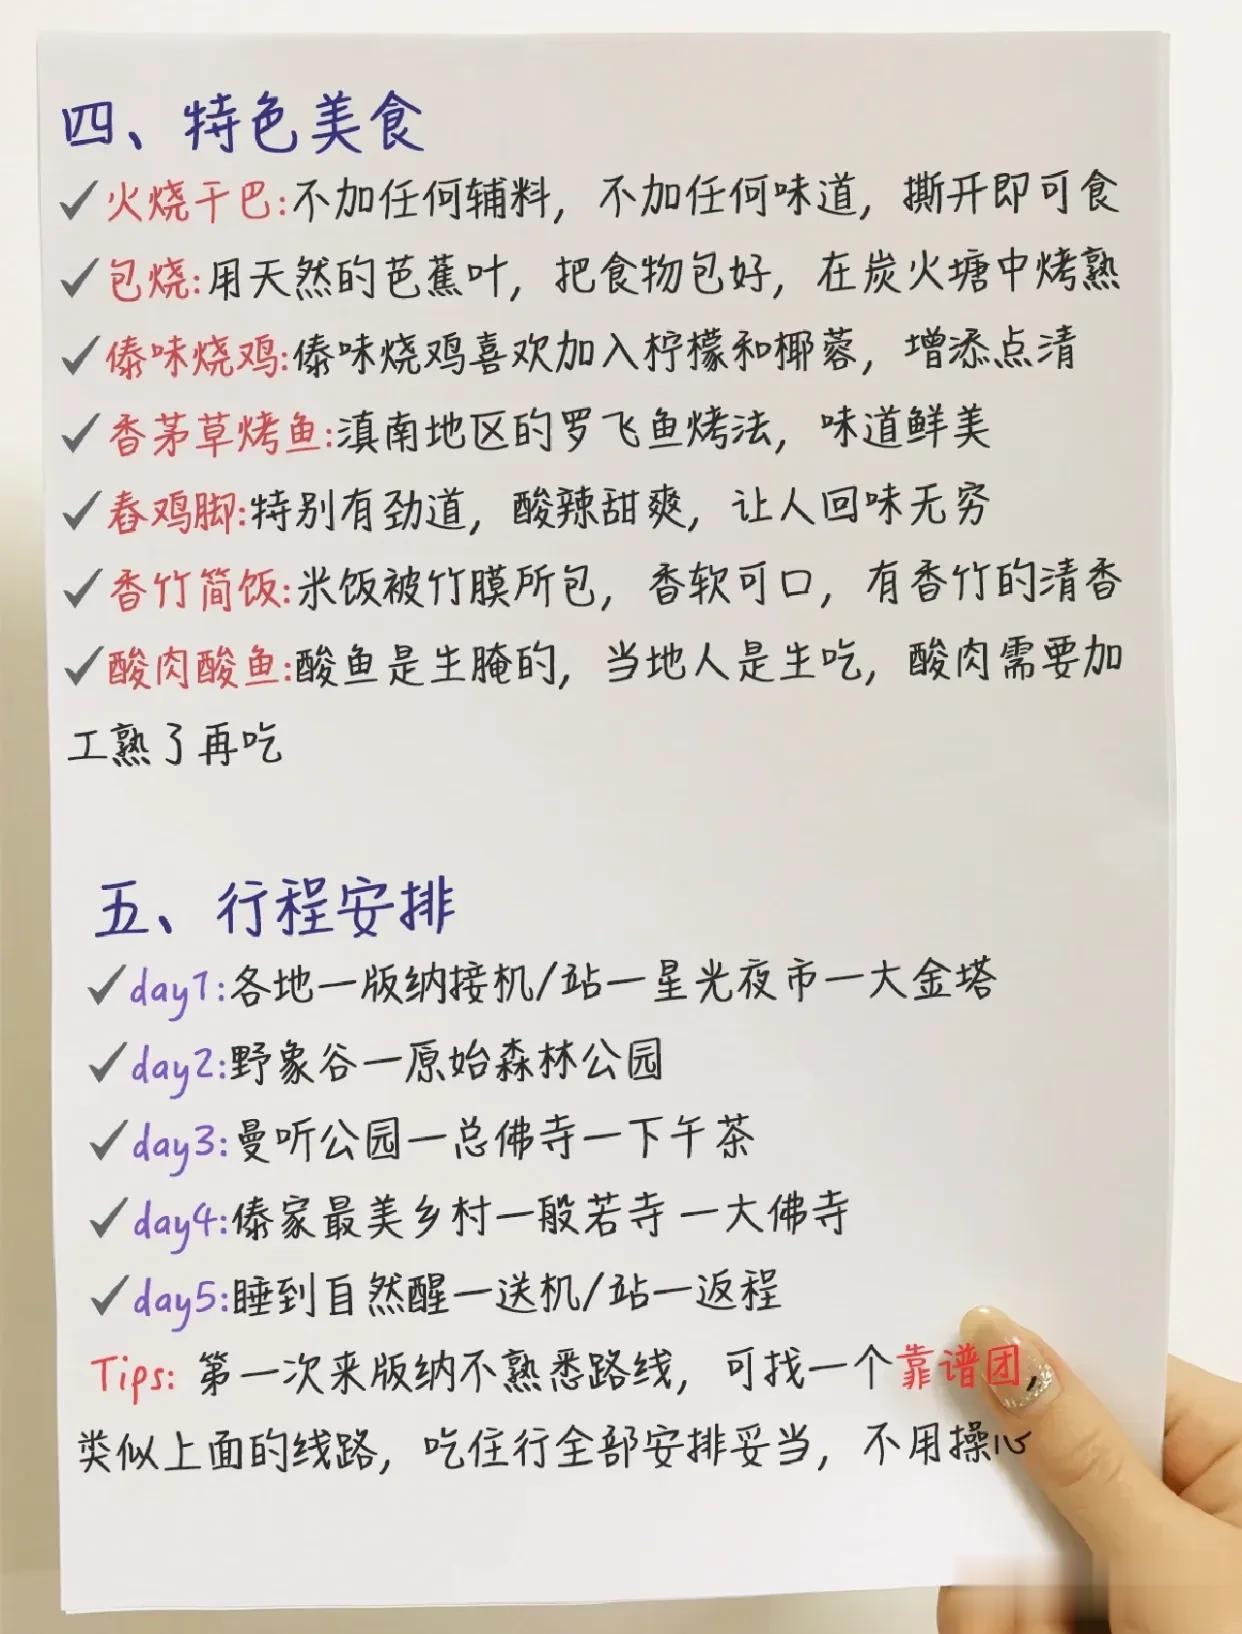 四、特色美食
✓火烧干巴:不加任何辅料，不加任何味道，撕开即可食
✓包烧:用天然的芭蕉叶，把食物包好，在炭火塘中烤熟
✓傣味烧鸡:傣味烧鸡喜欢加入柠檬和椰蓉，增添点清
✓香茅草烤鱼:滇南地区的罗飞鱼烤法，味道鲜美
✓舂鸡脚:特别有劲道，酸辣甜爽，让人回味无穷
✓香竹简饭:米饭被竹膜所包，香软可口，有香竹的清香
✓酸肉酸鱼:酸鱼是生腌的，当地人是生吃，酸肉需要加
工熟了再吃
五、行程安排
✓day1:各地一版纳接机/站一星光夜市一大金塔
✓day2:野象谷一原始森林公园
✓day3:曼听公园一总佛寺一下午茶
✓day4:傣家最美乡村一般若寺一大佛寺
✓day5:睡到自然醒一送机/站一返程
Tips: 第一次来版纳不熟悉路线，可找一个靠谱团，
类似上面的线路，吃住行全部安排妥当，不用操心